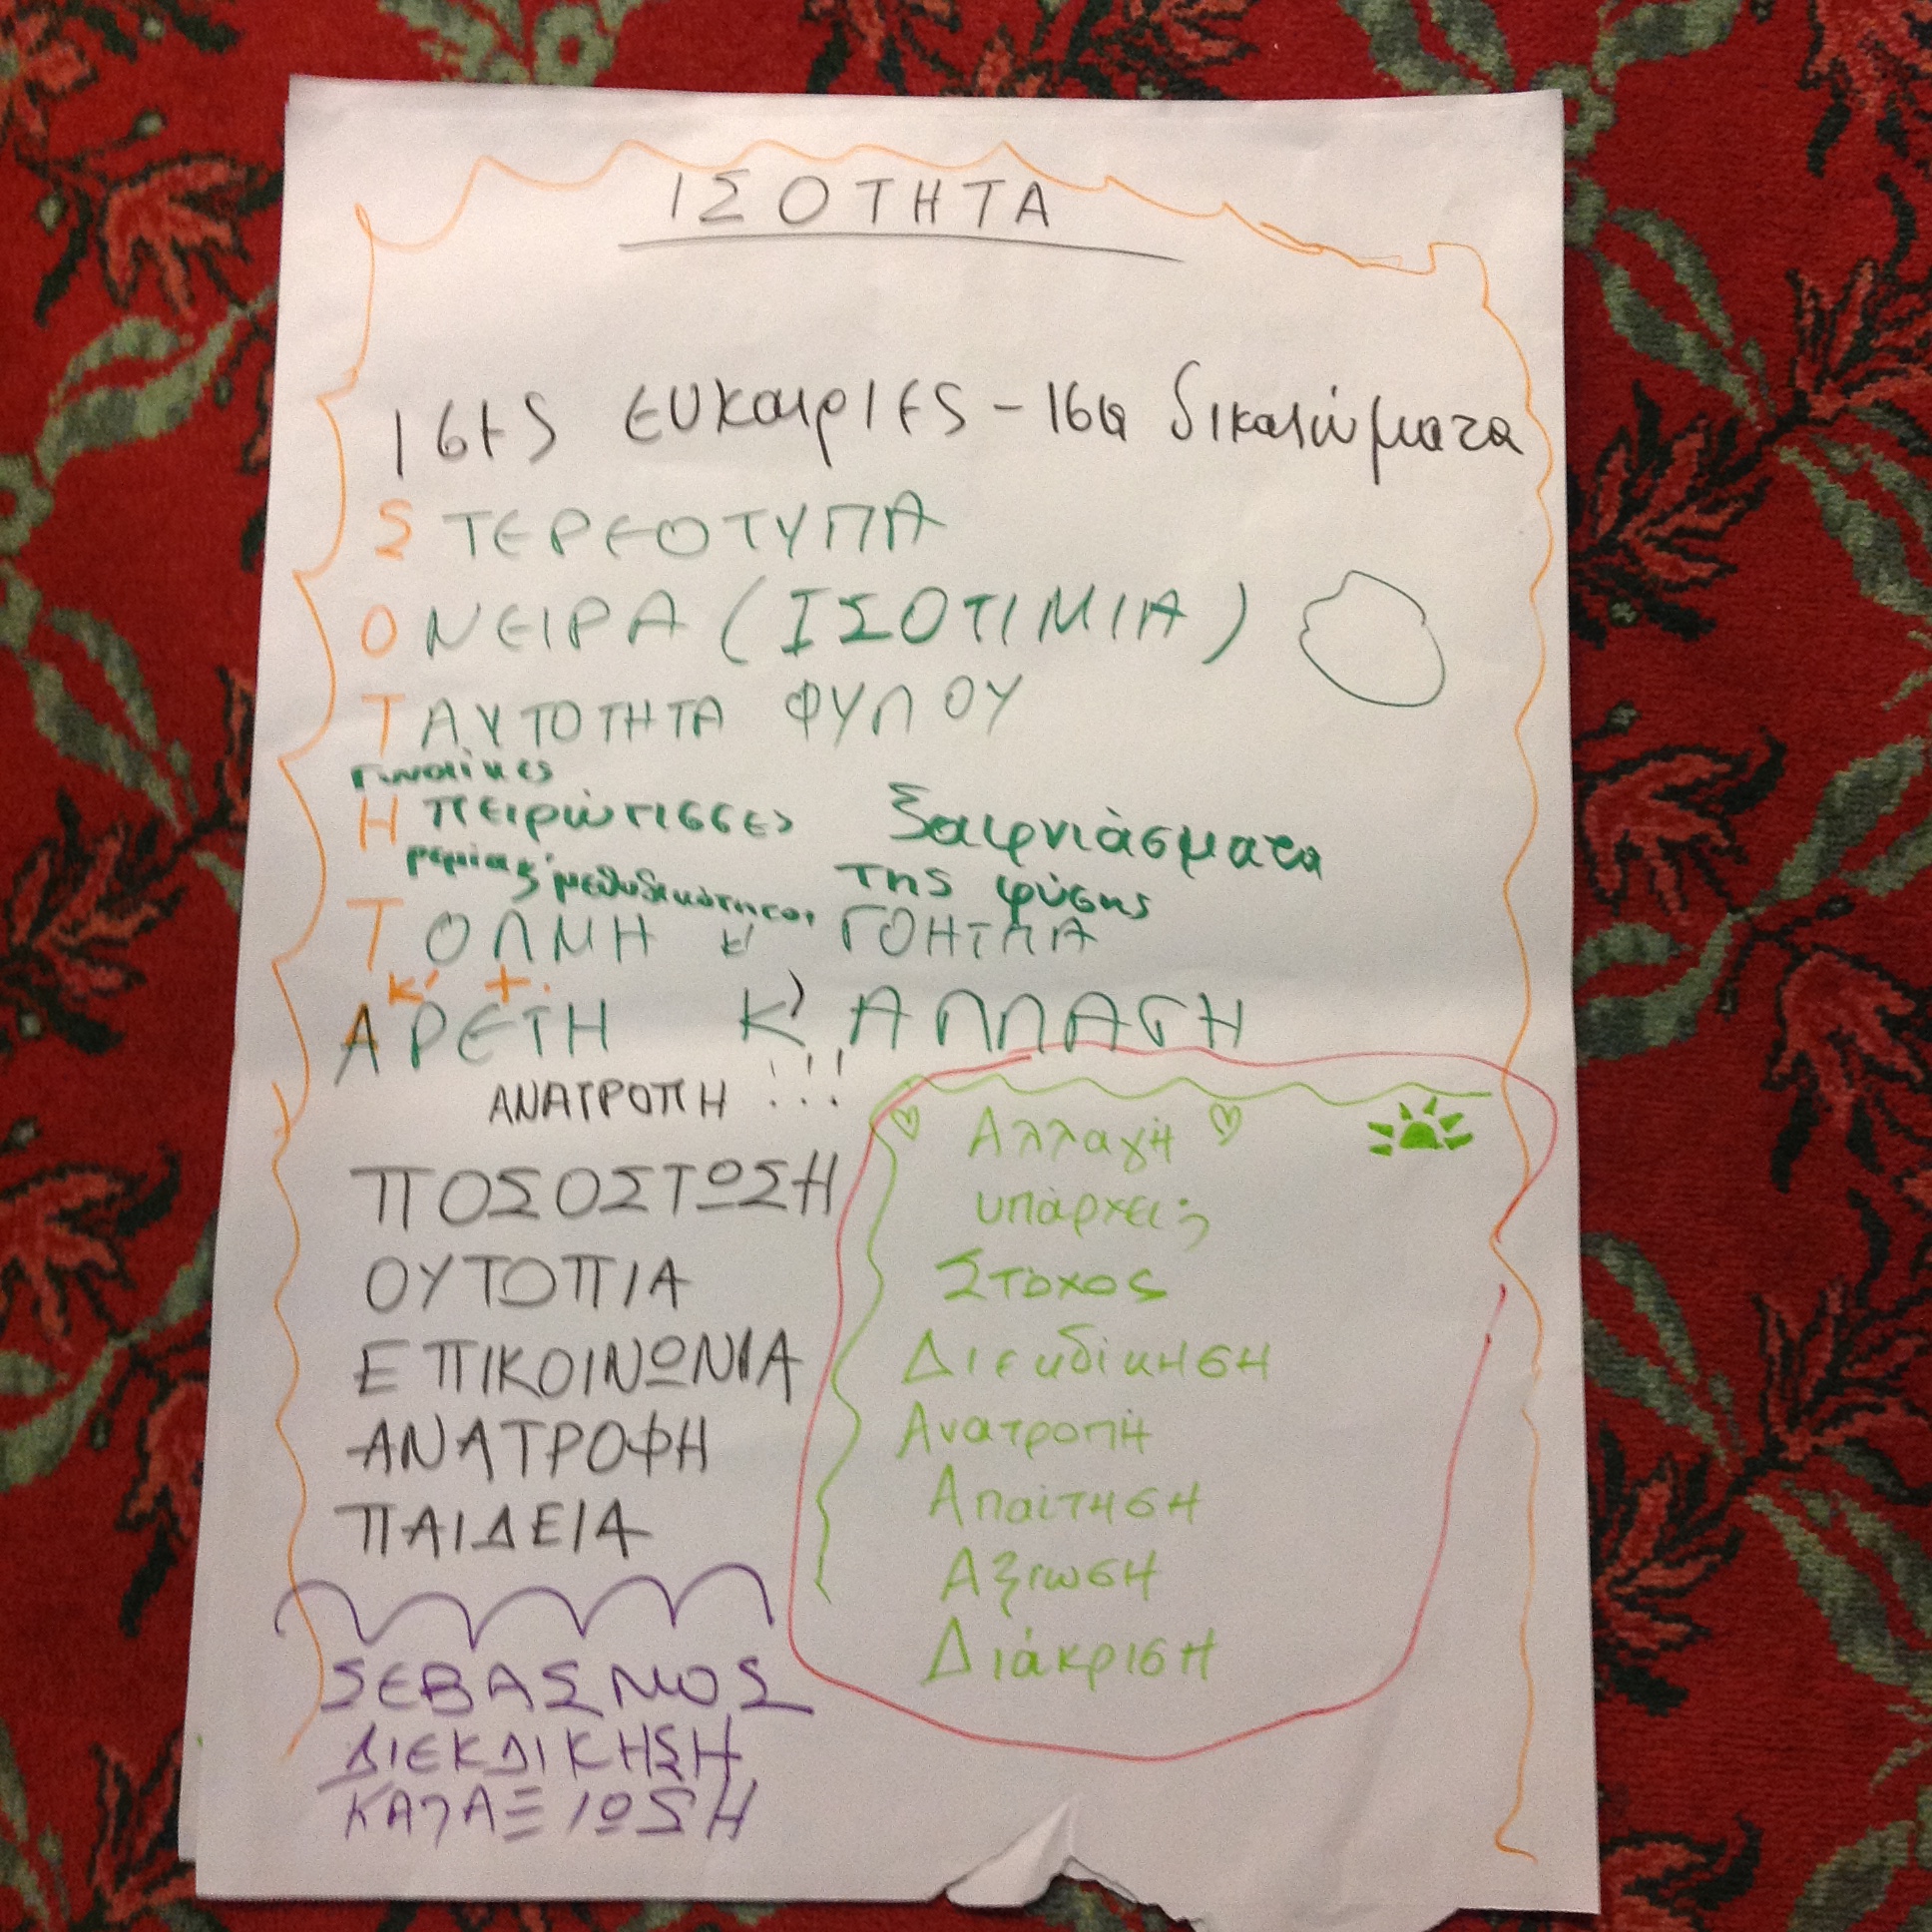 ΙΣΟΤΗΤΑ
Ισες ευκαιριες - ισα δικαιώματα
ΣΤΕΡΕΟΤΥΠΑ
ΟΝΕΙΡΑ (ΙΣΟΤΙΜΙΑ)
ΤΑΥΤΟΤΗΤΑ ΦΥΛΟΥ
Γυναίκες
Ηπειρώτισσες ξαφνιάσματα
ρεμία κ' μεθοδικότητα, της φύσης
ΤΟΛΜΗ κ' ΓΟΗΤΕΙΑ
κ' +.
ΑΡΕΤΗ Κ' ΑΛΛΑΓΗ
ΑΝΑΤΡΟΠΗ !!!
ΠΟΣΟΣΤΩΣΗ
ΟΥΤΟΠΙΑ
ΕΠΙΚΟΙΝΩΝΙΑ
ΑΝΑΤΡΟΦΗ
ΠΑΙΔΕΙΑ
ΣΕΒΑΣΜΟΣ
ΔΙΕΚΔΙΚΗΣΗ
ΚΑΤΑΞΙΩΣΗ
Αλλαγή
υπάρχει;
Στόχος
Διεκδίκηση
Ανατροπή
Απαίτηση
Αξίωση
Διάκριση